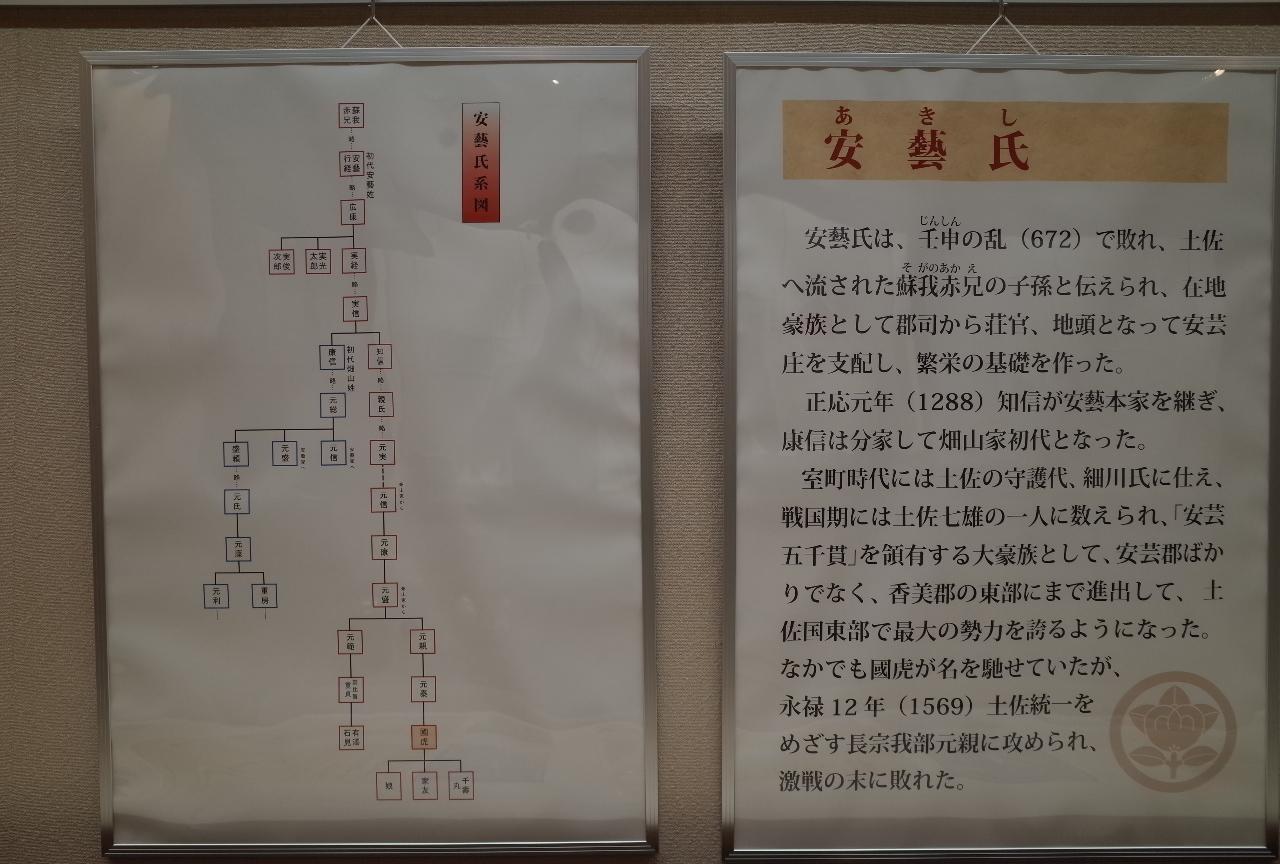 安藝氏系図
蘇我
赤兄
…略…
安藝
行経
初代安藝姓
…略…
広康
実経
実光
太郎
実俊
次郎
…略…
実信
知信
康信
初代畑山姓
…略…
…略…
親氏
元総
…略…
元実
元信
元盛
盛頼
…略…
元信
元氏
元康
元盛
元利
重房
元親
元範
元泰
國虎
有澤
石見
千壽
丸
家友
娘
あきし
安藝氏
じんしん
安藝氏は、壬申の乱（672）で敗れ、土佐
そがのあかえ
へ流された蘇我赤兄の子孫と伝えられ、在地
豪族として郡司から荘官、地頭となって安芸
庄を支配し、繁栄の基礎を作った。
正応元年（1288）知信が安藝本家を継ぎ、
康信は分家して畑山家初代となった。
室町時代には土佐の守護代、細川氏に仕え、
戦国期には土佐七雄の一人に数えられ、「安芸
五千貫」を領有する大豪族として、安芸郡ばか
りでなく、香美郡の東部にまで進出して、土
佐国東部で最大の勢力を誇るようになった。
なかでも國虎が名を馳せていたが、
永禄12年（1569）土佐統一を
めざす長宗我部元親に攻められ、
激戦の末に敗れた。